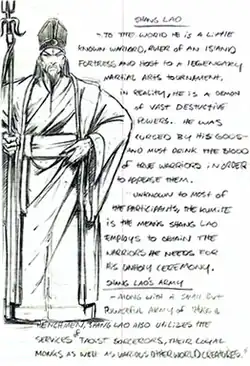 SHANG LAO
- TO THE WORLD HE IS A LITTLE
KNOWN WARLORD, RULER OF AN ISLAND
FORTRESS AND HOST TO A LEGENDARY
MARTIAL ARTS TOURNAMENT.
IN REALITY, HE IS A DEMON
OF VAST DESTUCTIVE
POWERS. HE WAS
CURSED BY HIS GODS
AND MUST DRINK THE BLOOD
OF TRUE WARRIORS IN ORDER
TO APPEASE THEM.
UNKNOWN TO MOST OF
THE PARTICIPANTS, THE KUMITE
IS THE MEANS SHANG LAO
EMPLOYS TO OBTAIN THE
WARRIORS HE NEEDS FOR
HIS UNHOLY CEREMONY.
SHANG LAO'S ARMY
- ALONG WITH A SMALL BUT
POWERFUL ARMY OF
HENCHMEN, SHANG LAO ALSO UTILIZES THE
SERVICES OF TAOIST SORCERORS, THEIR LOYAL
MONKS AS WELL AS VARIOUS OTHERWORLD CREATURES.